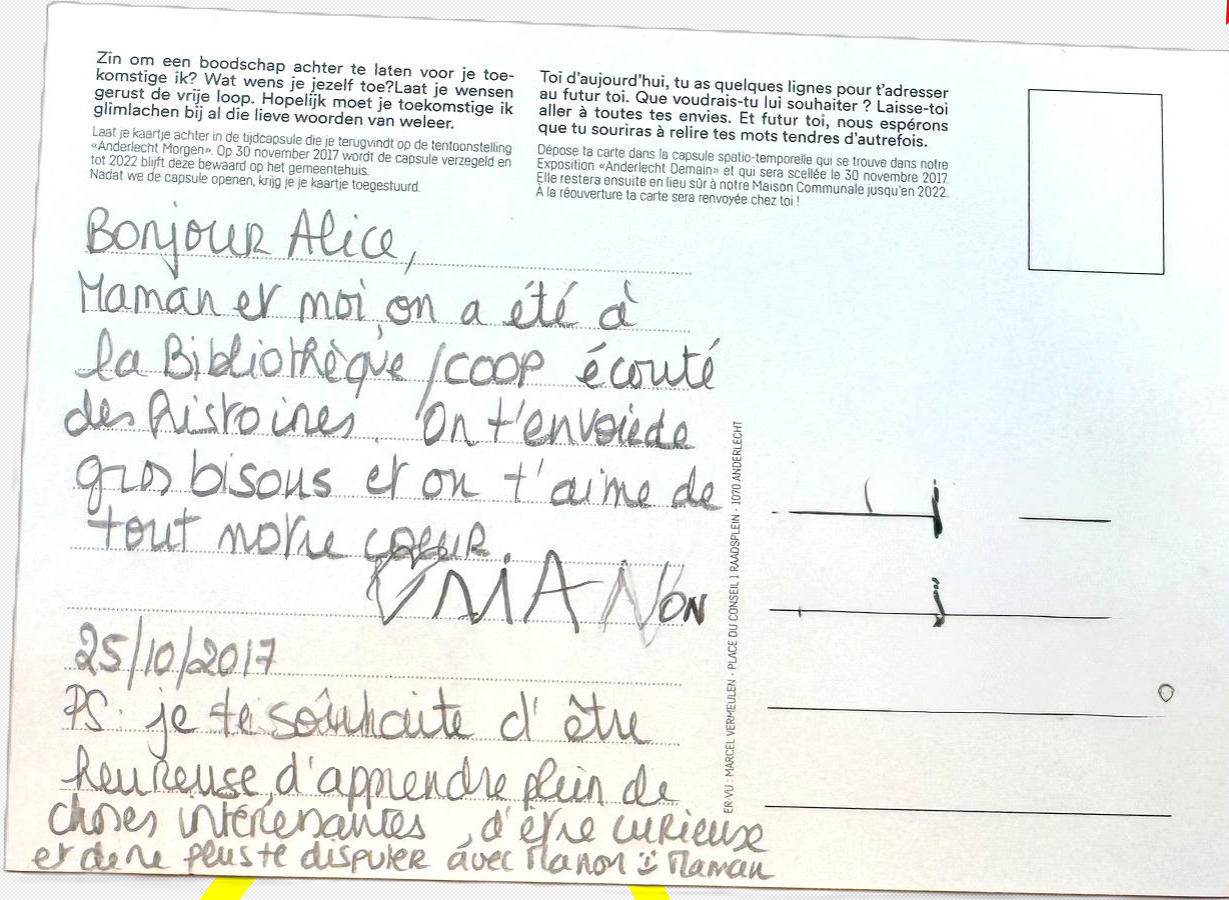 Zin om een boodschap achter te laten voor je toe-
komstige ik? Wat wens je jezelf toe?Laat je wensen
gerust de vrije loop. Hopelijk moet je toekomstige ik
glimlachen bij al die lieve woorden van weleer.
Laat je kaartje achter in de tijdcapsule die je terugvindt op de tentoonstelling
«Anderlecht Morgen». Op 30 november 2017 wordt de capsule verzegeld en
tot 2022 blijft deze bewaard op het gemeentehuis.
Nadat we de capsule openen, krijg je je kaartje toegestuurd.
Toi d'aujourd'hui, tu as quelques lignes pour t'adresser
au futur toi. Que voudrais-tu lui souhaiter ? Laisse-toi
aller à toutes tes envies. Et futur toi, nous espérons
que tu souriras à relire tes mots tendres d'autrefois.
Dépose ta carte dans la capsule spatio-temporelle qui se trouve dans notre
Exposition «Anderlecht Demain» et qui sera scellée le 30 novembre 2017.
Elle restera ensuite en lieu sûr à notre Maison Communale jusqu'en 2022.
À la réouverture ta carte sera renvoyée chez toi !
Bonjour Alice,
Maman et moi, on a été à
la Bibliothèque /COOP écouté
des histoires. On t'envoie de
gros bisous et on t'aime de
tout notre coeur.
MANON
25/10/2017
PS: je te souhaite d'être
heureuse, d'apprendre plein de
choses intéressantes, d'être curieuse
et de ne plus te disputer avec Manon Maman
ER-VU : MARCEL VERMEULEN - PLACE DU CONSEIL 1 RAADSPLEIN - 1070 ANDERLECHT